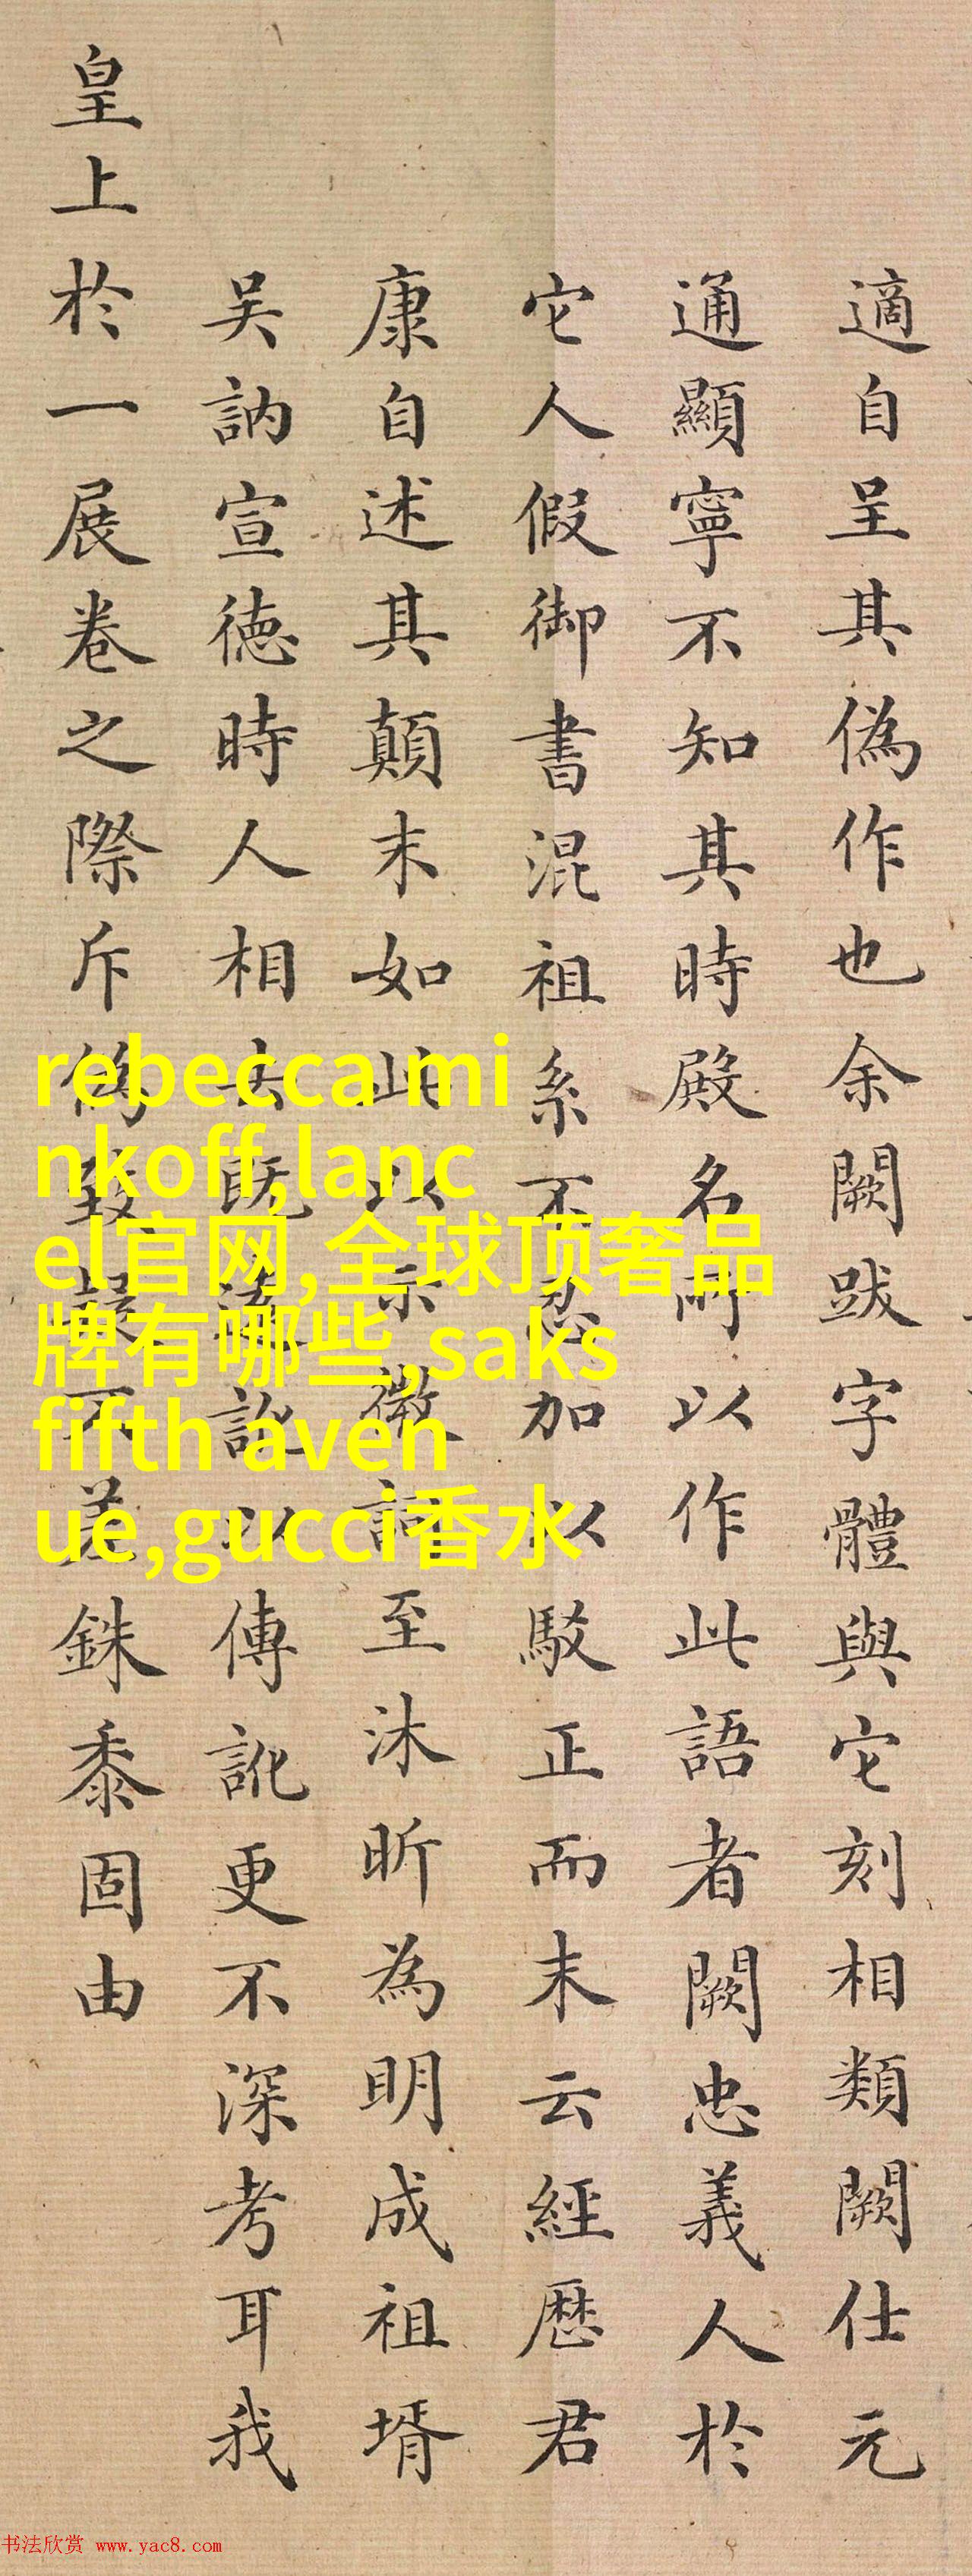 適自呈其偽作也余闕跋字體與它刻相類闕仕元
通顯寧不知其時殿名而以作此語者闕忠義人於
它人假御書混祖系不忍加以駁正而末云經歷君
康自述其顛末如此以示徵詞至沐昕為明成祖壻
吴訥宣徳時人相去既遠訛以傳訛更不深考耳我
皇上於一展卷之際斥偽致誤不差銖黍固由
rebecca mi
nkoff,lanc
el官网,全球顶奢品
牌有哪些,saks
fifth aven
ue,gucci香水
书法欣赏 www.yac8.com